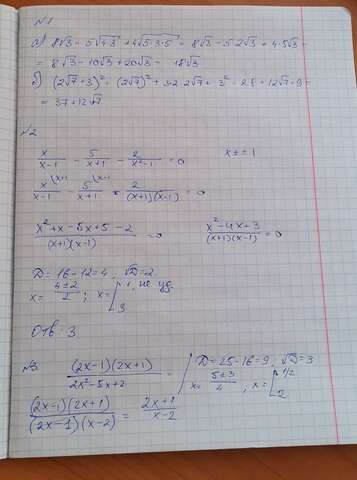 №1
а) 8√3 - 5√4·3 + 4√5·3·5 = 8√3 - 5·2√3 + 4·5√3 =
= 8√3 - 10√3 + 20√3 = 18√3
б) (2√7 + 3)² = (2√7)² + 3·2·2√7 + 3² = 28 + 12√7 + 9 =
= 37 + 12√7
№2
x/(x-1) - 5/(x+1) - 2/(x²-1) = 0 x ≠ ± 1
x\x+1/(x-1) - 5\x-1/(x+1) - 2/((x+1)(x-1)) = 0
(x² + x - 5x + 5 - 2)/((x+1)(x-1)) = 0 (x² - 4x + 3)/((x+1)(x-1)) = 0
D = 16 - 12 = 4, √D = 2
x = (4±2)/2 ; x = [1, не уд.
3
Отв: 3
№3 (2x-1)(2x+1)/(2x²-5x+2) = | D = 25 - 16 = 9, √D = 3
x = (5±3)/4 , x = [1/2
2
(2x-1)(2x+1)/((2x-1)(x-2)) = (2x+1)/(x-2)